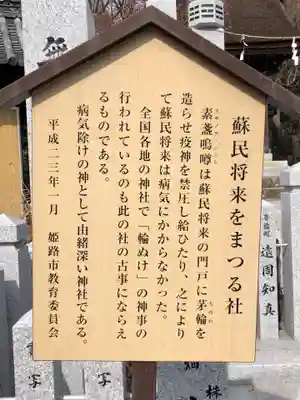 蘇民将来をまつる社
素盞嗚噂は蘇民将来の門戸に茅輪を
造らせ疫神を禁圧し給ひたり、之により
て蘇民将来は病気にかからなかった。
全国各地の神社で「輪ぬけ」の神事の
行われているのも此の社の古事にならえ
るものである。
病気除けの神として由緒深い神社である。
平成二三年一月 姫路市教育委員会
遠周知真